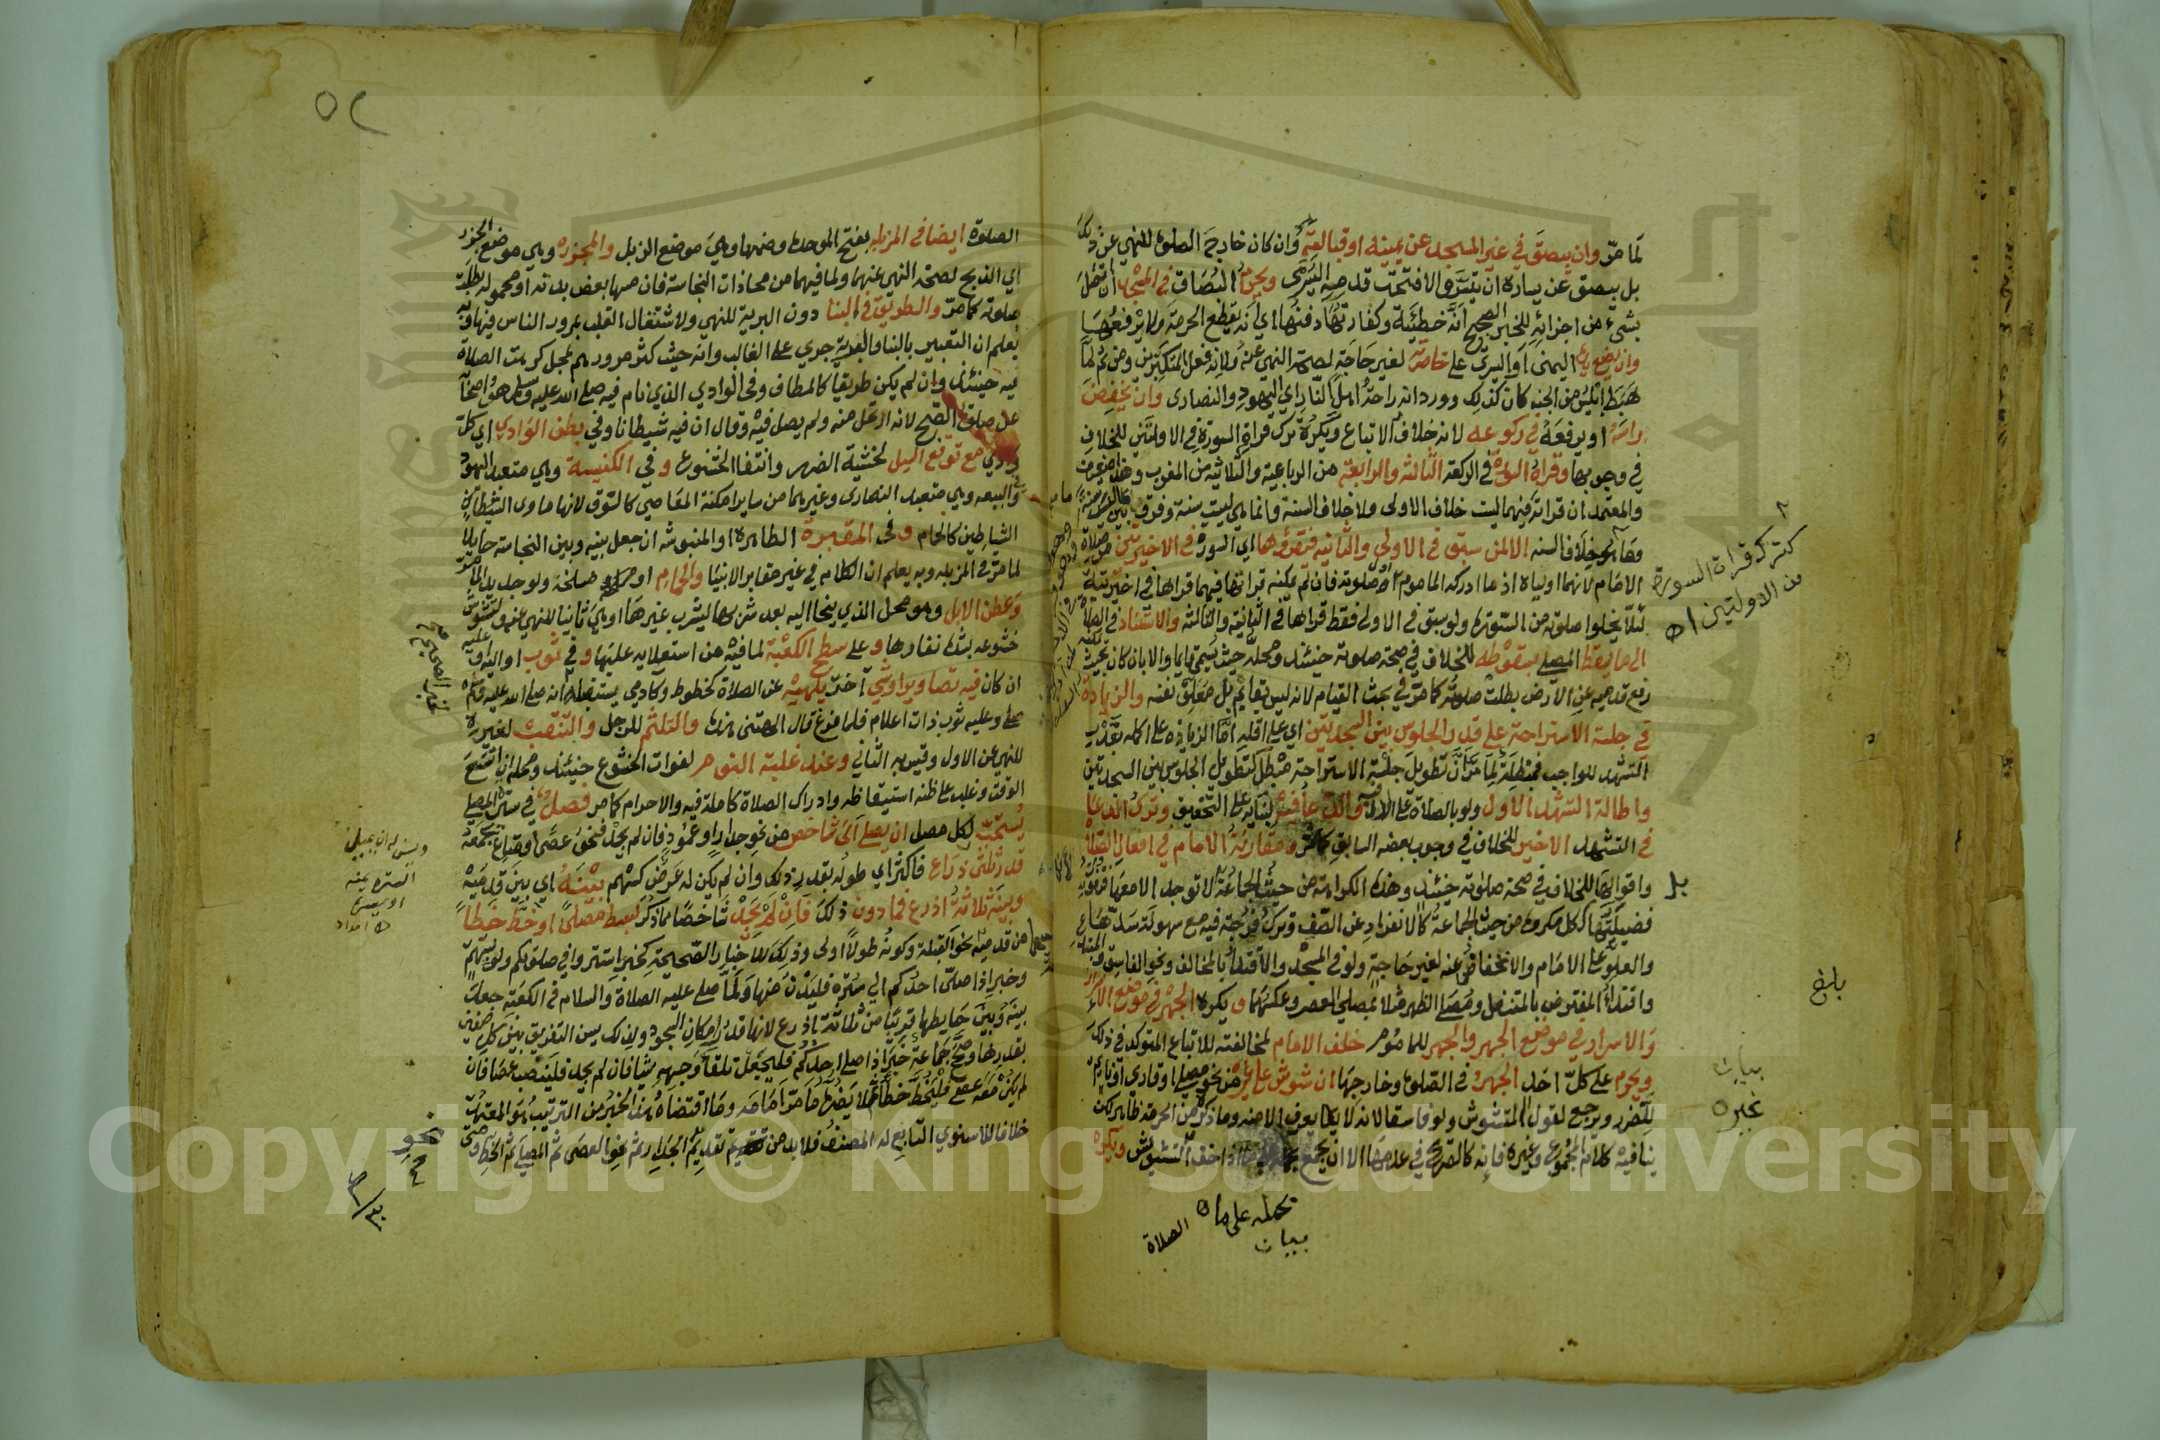 لما مرّ وان يبصق في غير المسجد عن يمينه او قبالته وان كان خارج الصلوة للنهي عن ذلك
بل يبصق عن يساره ان تيسّر والا فتحت قدمه اليسرى ويحرم البصاق في المسجد ان اتصل
بشيء من اجزائه للخبر الصحيح انه خطيئة وكفارتها دفنها اي انه يقطع الحرمة ولا يرفعها
وان يضع يده اليمنى او اليسرى على خاصرته لغير حاجة لصحة النهي عنه ولانه فعل المتكبرين ومن ثم لما
هبط ابليس من الجنة كان كذلك وورد انه راحة اهل النار اي اليهود والنصارى وان يخفض
راسه او يرفعه في ركوعه لانه خلاف الاتباع ويكره ترك قراءة السورة في الاولتين للخلاف
في وجوبها وقراءة السورة في الركعة الثالثة والرابعة من الرباعية والثلاثية من المغرب وهذا ضعيف
والمعتمد ان قراته فيهما ليست خلاف الاولى ولا خلاف السنة وانما هي ليست سنة وفرق بين
وما هو خلاف السنة الا لمن سبق في الاولى والثانية فيقرؤهما اي السورة في الاخيرتين من صلاة
الامام لانهما اولياه اذ ما ادركه الماموم اول صلوته فان لم يمكنه قراتها فيهما قراها في اخيرتيه
لئلا يخلوا صلوته من السورة ولو سبق في الاولى فقط قراها في الثانية والثالثة والاستناد في الصلاة
الى ما يسقط المصلي بسقوطه للخلاف في صحة صلوته حينئذ ومحله حيث يسمى قائما والا بان كان بحيث
رفع قدميه عن الارض بطلت صلوته كما مر في بحث القيام لانه ليس بقايم بل معلق نفسه والزيادة
في جلسة الاستراحة على قدر الجلوس بين السجدتين اي على اقله اما الزيادة على اكمله بقدر
التشهد الواجب فمبطلة لما مر ان تطويل جلسة الاستراحة مبطل كتطويل الجلوس بين السجدتين
واطالة التشهد الاول ولو بالصلاة على الال والدعا فيه لبنايه على التخفيف وترك الدعا
في التشهد الاخير للخلاف في وجوب بعضه السابق ومقارنة الامام في افعال الصلاة
واقوالها للخلاف في صحة صلوته حينئذ وهذه الكراهة من حيث الجماعة لا توجد الا معها
فضيلتها ككل مكروه من حيث الجماعة كالانفراد عن الصف وترك فرجة فيه مع سهولة سدها
والعلو على الامام والانخفاض عنه لغير حاجة ولو في المسجد والاقتداء بالمخالف ونحو الفاسق والمبتدع
واقتداء المفترض بالمتنفل ومصلي الظهر مثلا بمصلي العصر وعكسهما ويكره الجهر في موضع الاسرار
والاسرار في موضع الجهر والجهر للماموم خلف الامام لمخالفته للاتباع المتوكد في ذلك
ويحرم على كل احد الجهر في الصلوة وخارجها ان شوش على غيره من نحو مصل او قارئ او نايم
للضرر ويرجع لقول المتشوش ولو فاسقا لانه لا يعرف الا منه وما ذكره من الحرمة ظاهر لكن
ينافيه كلام المجموع وغيره فانه كالصريح في عدمها الا ان يجمع اذا خف التشويش ويكره
كترك قرات السورة
من الاولتين اه
بل
بلغ
بيان
غيره
تحمله على ما
بيان
الصلاة
٥٢
الصلوة ايضا في المزبلة بفتح الموحدة وضمها وهي موضع الزبل والمجزرة وهي موضع الجزر
اي الذبح لصحة النهي عنهما ولما فيهما من محاذات النجاسة فان مسها بعض بدنه او محموله بطلت
صلوته كما مر والطريق في البنا دون البرية للنهي ولاشتغال القلب بمرور الناس فيها وبه
يعلم ان التعبير بالبنا والبرية جري على الغالب وانه حيث كثر مرورهم بمحل كرهت الصلاة
فيه حينئذ وان لم يكن طريقا كالمطاف وفي الوادي الذي نام فيه صلى الله عليه وسلم هو واصحابه
عن صلوة الصبح لانه ارتحل عنه ولم يصل فيه وقال ان فيه شيطانا وفي بطن الوادي اي كل
وادي مع توقع السيل لخشية الضرر وانتفا الخشوع وفي الكنيسة وهي متعبد اليهود
والبيعة وهي متعبد النصارى وغيرهما من ساير امكنة المعاصي كالسوق لانها ماوى الشيطان
الشياطين كالحمام وفي المقبرة الطاهرة او المنبوشة ان جعل بينه وبين النجاسة حايلا
لما مر في المزبلة وبه يعلم ان الكلام في غير مقابر الانبيا والحمام او مسلخه ولو جديدا لما مر
وعطن الابل وهو محل الذي ينحا اليه بعد شربها ليشرب غيرها او هي ثانيا للنهي عنه ولتشوش
خشوعه بشدة نفارها وعلى سطح الكعبة لما فيه من استعلايه عليها وفي ثوب او اليه او عليه
ان كان فيه تصاوير او شي آخر يلهيه عن الصلاة كخطوط وكادمي يستقبله انه صلى الله عليه وسلم
صلى وعليه ثوب ذات اعلام فلما فرغ قال الهتني هذه والتلثم للرجل والتنقب لغيره
للنهي عن الاول وقيس به الثاني وعند غلبة النوم لفوات الخشوع حينئذ ومحله ان اتسع
الوقت وغلب على ظنه استيقاظه وادراك الصلاة كاملة فيه والا حرم كما مر فصل في سترة المصلي
يستحب لكل مصل ان يصلي الى شاخص من نحو جدار او عمود فان لم يجد فنحو عصى او متاع يجمعه
قدر ثلثي ذراع فاكثر اي طوله بقدر ذلك وان لم يكن له عرض كسهم بينه اي بين قدميه
وبينه ثلاثة اذرع فما دون ذلك فان لم يجد شاخصا مما ذكر بسط مصلى او خط خطا
من قدميه نحو القبلة وكونه طولا اولى وذلك للاخبار الصحيحة كخبر استتروا في صلوتكم ولو بسهم
وخبر اذا صلى احدكم الى سترة فليدن منها ولما صلى عليه الصلاة والسلام في الكعبة جعل
بينه وبين حايطها قريبا من ثلاثة اذرع لانها قدر امكان السجود ولذلك يسن التفريق بين كل صفين
بقدرها وصحح جماعة خبر اذا صلى احدكم فليجعل تلقا وجهه شيا فان لم يجد فلينصب عصا فان
لم يكن معه عصى فليخط خطا ثم لا يضره ما مر امامه وما اقتضاه هذا الخبر من الترتيب هو المعتمد
خلافا للاسنوي التابع له المصنف فلا بد من تقديم الجدار ثم نحو العصى ثم المصلى ثم الخط
لخبر الصحيحين
وليس له ان يجعل
السترة يمينه
او يسره
نحو
Copyright © King Saud University